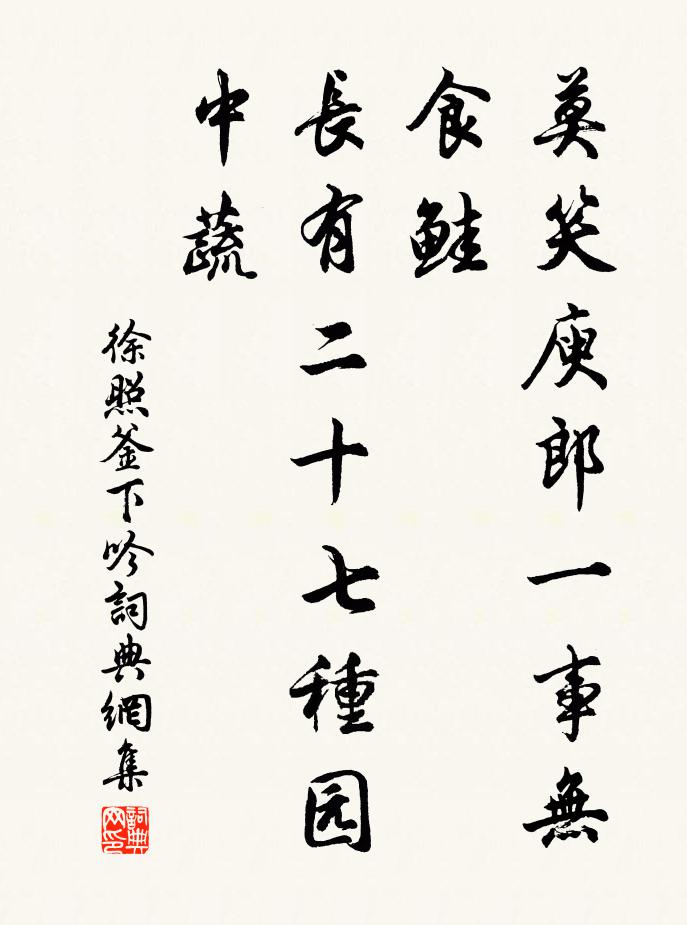 莫笑庾郎一事無
食鮭
長有二十七種园
中蔬
徐照釜下吟詞典網集
詞典网印